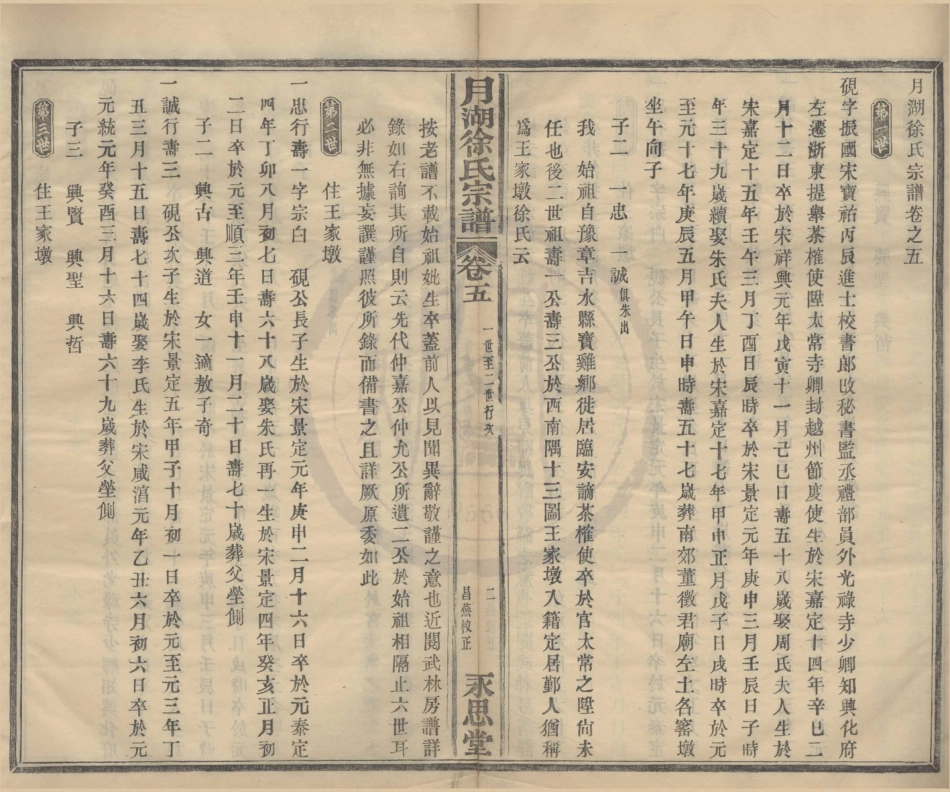 月湖徐氏宗譜卷之五
第一世
硯字振國宋寶祐丙辰進士校書郎改秘書監丞禮部員外光祿寺少卿知興化府
左遷浙東提舉茶榷使陞太常寺卿封越州節度使生於宋嘉定十四年辛巳二
月十二日卒於宋祥興元年戊寅十一月己巳日壽五十八歲娶周氏夫人生於
宋嘉定十五年壬午三月丁酉日辰時卒於宋景定元年庚申三月壬辰日子時
年三十九歲續娶朱氏夫人生於宋嘉定十七年甲申正月戊子日戌時卒於元
至元十七年庚辰五月甲午日申時壽五十七歲葬南郊董徵君廟左土名窰墩
坐午向子
子二 一忠 一誠俱朱出
我 始祖自豫章吉水縣寶雞鄉徙居臨安謫茶榷使卒於官太常之陞尙未
任也後二世祖壽一公壽三公於西南隅十三圖王家墩入籍定居鄞人猶稱
爲王家墩徐氏云
月湖徐氏宗譜 卷五 一世至二世行次 二 昌燕校正 永思堂
按老譜不載始祖妣生卒蓋前人以見聞異辭敬謹之意也近閱武林房譜詳
錄如右詢其所自則云先代仲嘉公仲允公所遺二公於始祖相隔止六世耳
必非無據妄譔謹照彼所錄而備書之且詳厥原委如此
第二世 住王家墩
一忠行壽一字宗白 硯公長子生於宋景定元年庚申二月十六日卒於元泰定
四年丁卯八月初七日壽六十八歲娶朱氏再一生於宋景定四年癸亥正月初
二日卒於元至順三年壬申十一月二十日壽七十歲葬父塋側
子二 興古 興道 女一適敖子奇
一誠行壽三 硯公次子生於宋景定五年甲子十月初一日卒於元至元三年丁
丑三月十五日壽七十四歲娶李氏生於宋咸淳元年乙丑六月初六日卒於元
元統元年癸酉三月十六日壽六十九歲葬父塋側
子三 興賢 興聖 興哲
第三世 住王家墩